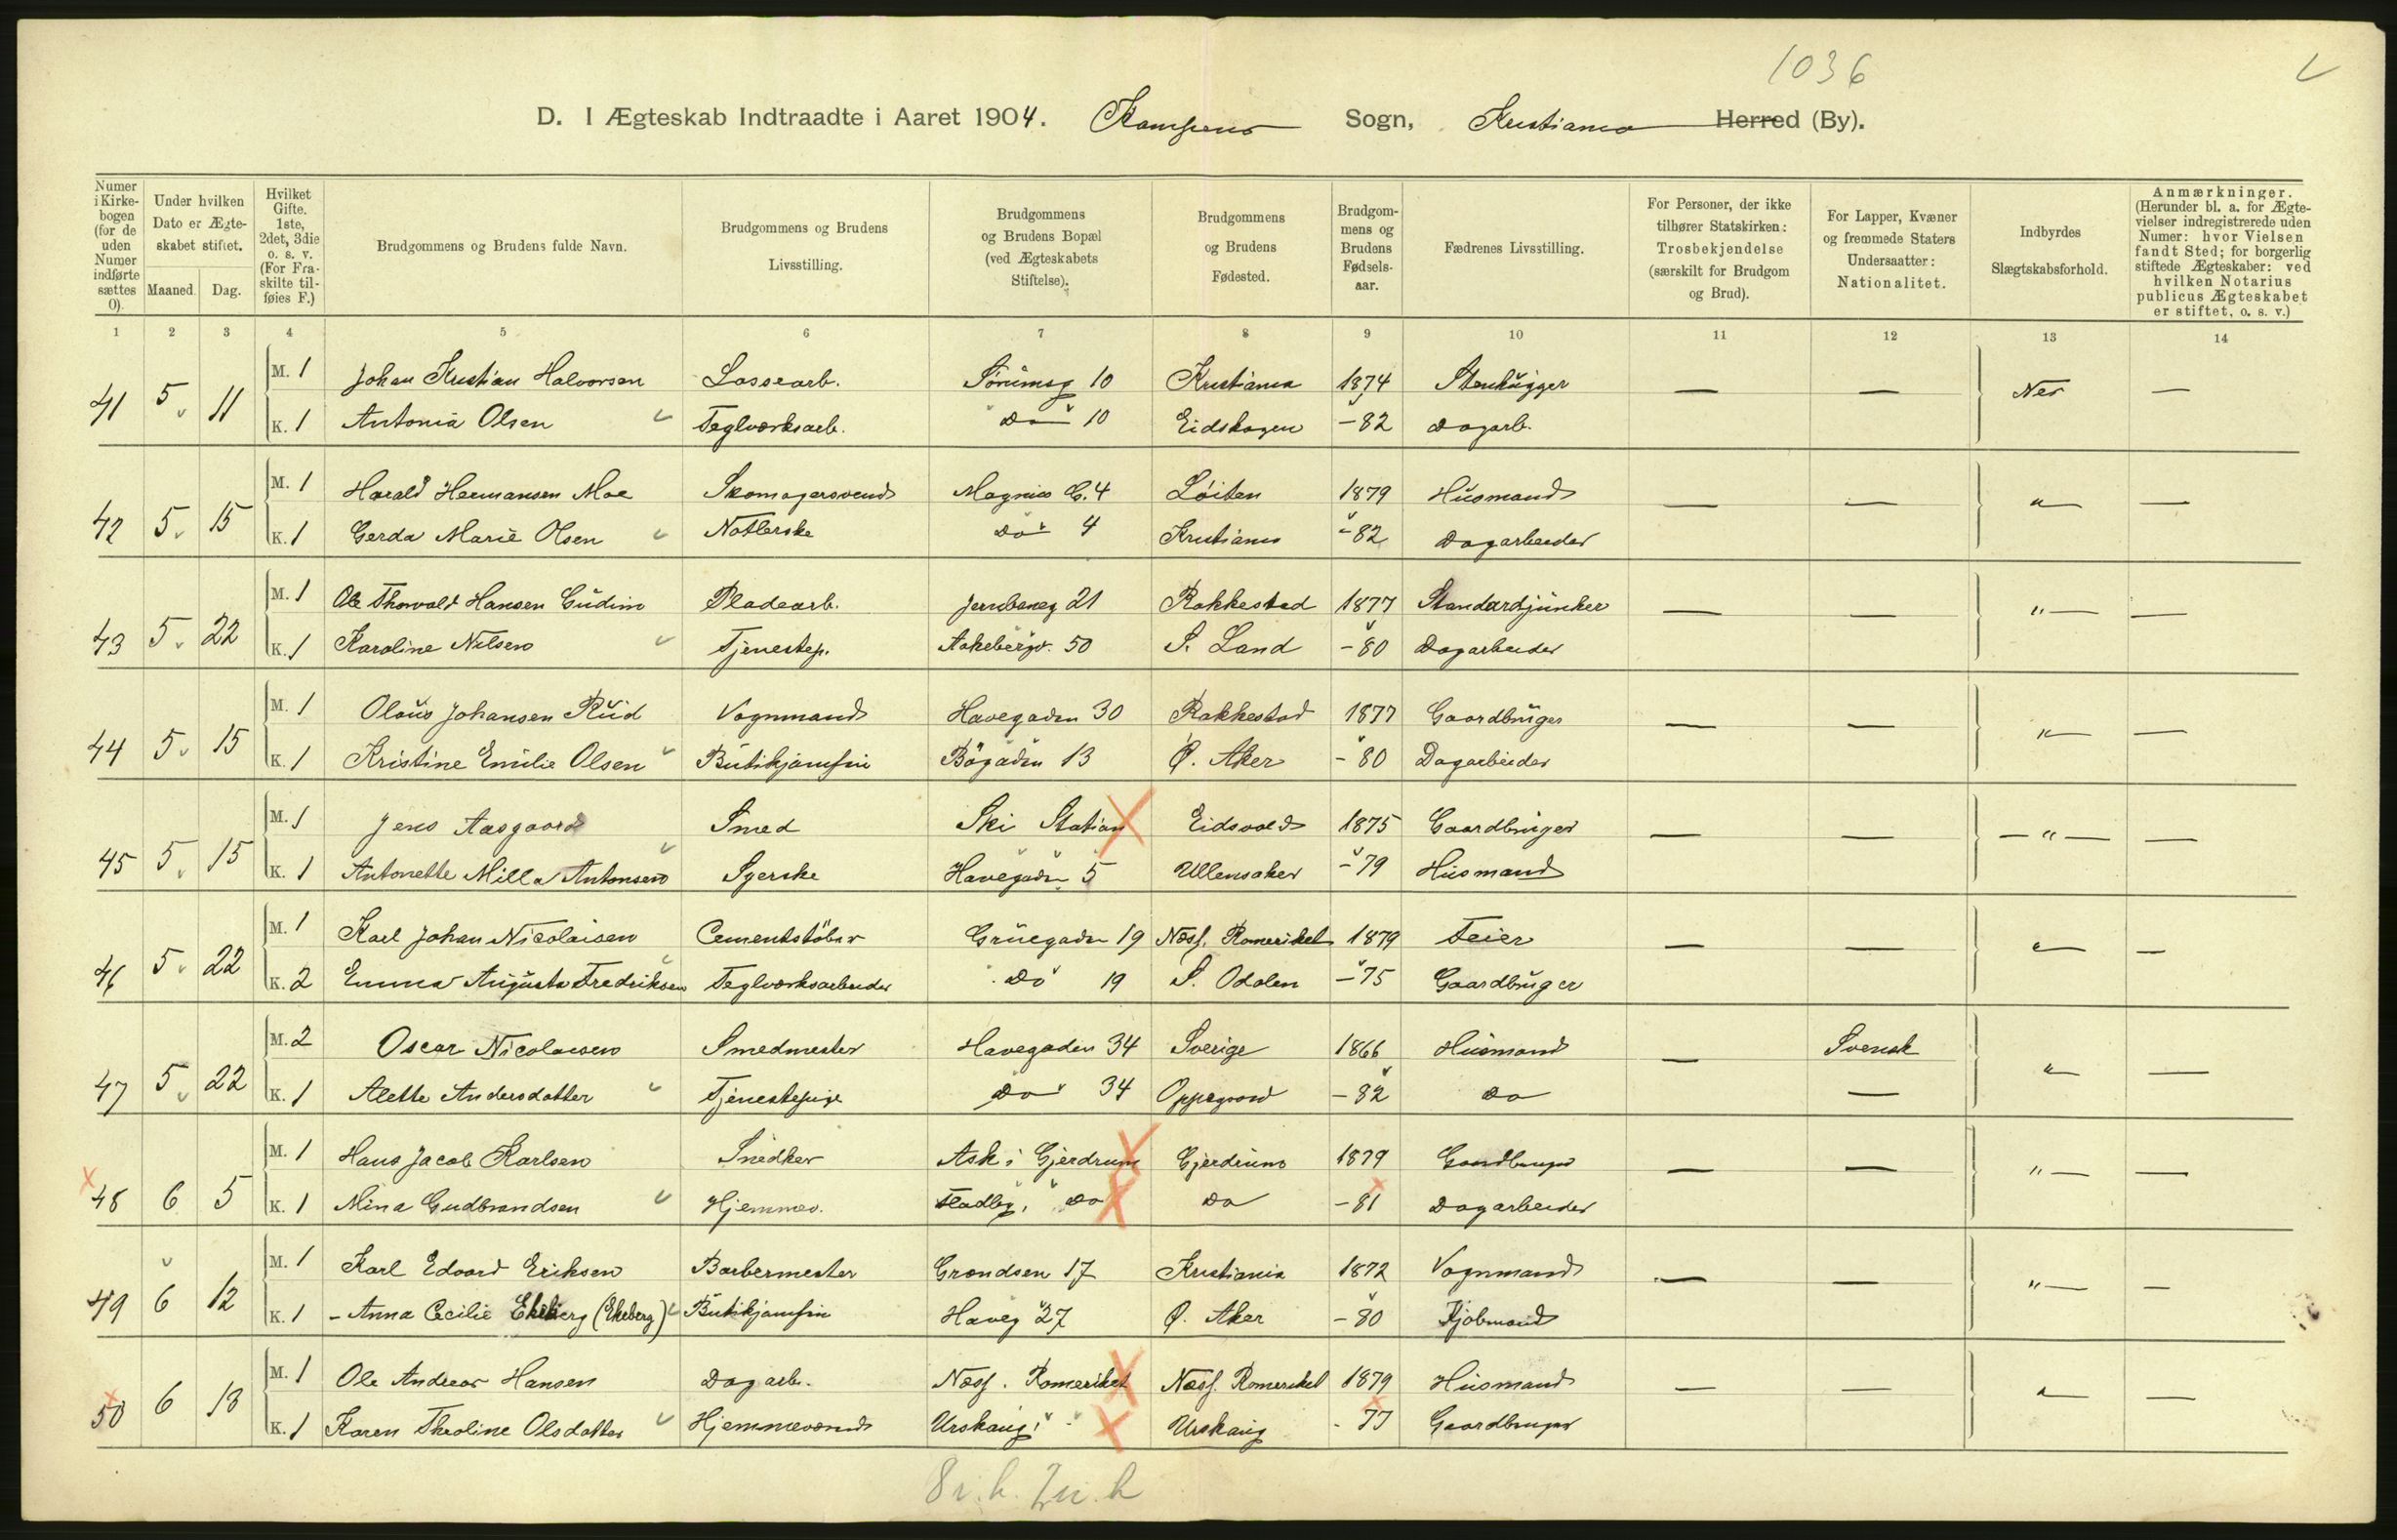 1036
D. I Ægteskab Indtraadte i Aaret 1904. Kampens Sogn, Kristiania Herred (By).
Numer i Kirkebogen (for de uden Numer indførte sættes 0). | Under hvilken Dato er Ægteskabet stiftet. Maaned. Dag. | Hvilket Gifte. 1ste, 2det, 3die o. s. v. (For Fraskilte tilføies F.) | Brudgommens og Brudens fulde Navn. | Brudgommens og Brudens Livsstilling. | Brudgommens og Brudens Bopæl (ved Ægteskabets Stiftelse). | Brudgommens og Brudens Fødested. | Brudgommens og Brudens Fødselsaar. | Fædrenes Livsstilling. | For Personer, der ikke tilhører Statskirken: Trosbekjendelse (særskilt for Brudgom og Brud). | For Lapper, Kvæner og fremmede Staters Undersaatter: Nationalitet. | Indbyrdes Slægtskabsforhold. | Anmærkninger. (Herunder bl. a. for Ægtevielser indregistrerede uden Numer: hvor Vielsen fandt Sted; for borgerlig stiftede Ægteskaber: ved hvilken Notarius publicus Ægteskabet er stiftet, o. s. v.)
1 2 3 4 5 6 7 8 9 10 11 12 13 14
41 5 11 M. 1 Johan Kristian Halvorsen Lossearb. Sørumsg 10 Kristiania 1874 Stenhugger — — Nei —
K. 1 Antonia Olsen Teglværksarb. Do 10 Eidskogen - 82 Dagarb.
42 5 15 M. 1 Harald Hermansen Moe Skomagersvend Magnus G. 4 Løiten 1879 Husmand — — " —
K. 1 Gerda Marie Olsen Notlerske Do 4 Kristiania - 82 Dagarbeider
43 5 22 M. 1 Ole Thorvald Hansen Gudim Pladearb. Jernbaneg 21 Rakkestad 1877 Standardjunker — — " — —
K. 1 Karoline Nilsen Tjenestep. Aakebergv. 50 S. Land - 80 Dagarbeider
44 5 15 M. 1 Olaus Johansen Rud Vognmand Havegaden 30 Rakkestad 1877 Gaardbruger — — " — —
K. 1 Kristine Emilie Olsen Butikjomfru Bøgaden 13 Ø. Aker - 80 Dagarbeider
45 5 15 M. 1 Jens Aasgaard Smed Ski Station Eidsvold 1875 Gaardbruger — — — " — —
K. 1 Antonette Milla Antonsen Syerske Havegaden 5 Ullensaker - 79 Husmand
46 5 22 M. 1 Karl Johan Nicolaisen Cementstøber Gruegaden 19 Næss. Romeriket 1879 Feier — — " — —
K. 2 Emma Augusta Fredriksen Teglværksarbeider Do 19 S. Odalen - 75 Gaardbruger
47 5 22 M. 2 Oscar Nicolaisen Smedmester Havegaden 34 Sverige 1866 Husmand — Svensk " — —
K. 1 Alette Andersdatter Tjenestepige Do 34 Oppegaard - 82 Do —
48 6 5 M. 1 Hans Jacob Karlsen Snedker Ask i Gjerdrum Gjerdrum 1879 Gaardbruger — — " — —
K. 1 Mina Gudbrandsen Hjemmev. Fladby, Do Do - 81 Dagarbeider
49 6 12 M. 1 Karl Edvard Eriksen Barbermester Grændsen 17 Kristiania 1872 Vognmand — — " — —
K. 1 - Anna Cecilie Ekeberg (Ekeberg) Butikjomfru Haveg 27 Ø. Aker - 80 Kjøbmand
50 6 13 M. 1 Ole Andreas Hansen Dagarb. Næss. Romeriket Næss. Romeriket 1879 Husmand — — " — —
K. 1 Karen Theoline Olsdatter Hjemmeværende Urskaug Urskaug - 77 Gaardbruger